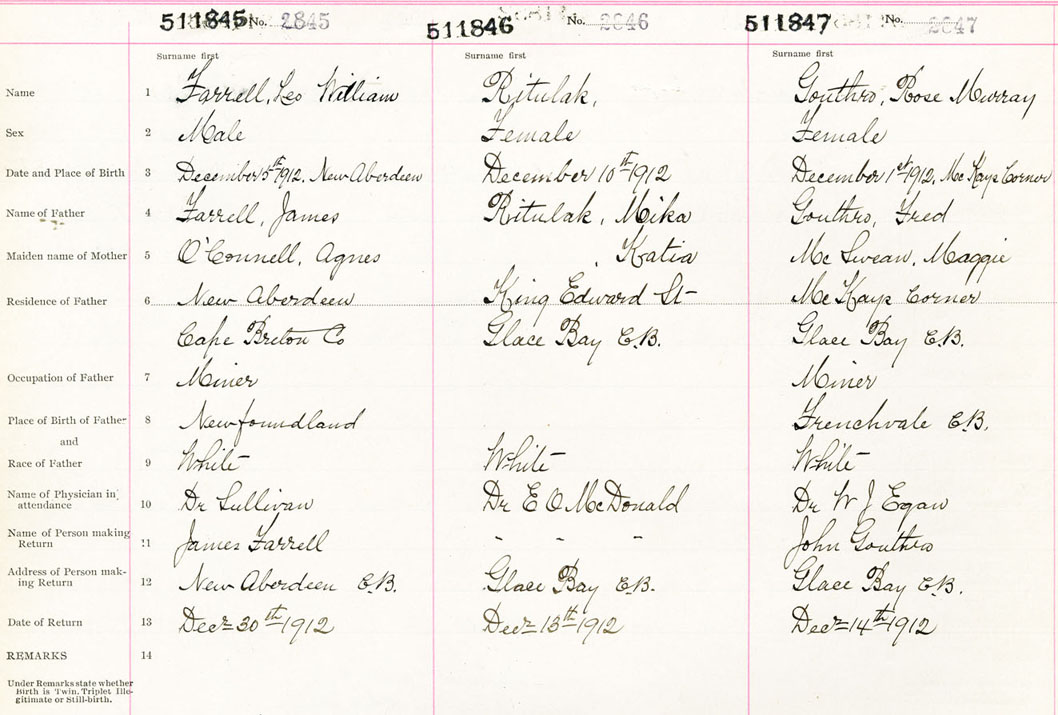 511845 No. 2845 511846 No. 2846 511847 No. 2847
Surname first Surname first Surname first
Name 1 Farrell, Leo William Ritulak, Gouthro, Rose Murray
Sex 2 Male Female Female
Date and Place of Birth 3 December 5th 1912. New Aberdeen December 10th 1912 December 1st 1912, Mc Kays Corner
Name of Father 4 Farrell, James Ritulak, Mika Gouthro, Fred
Maiden name of Mother 5 O'Connell, Agnes , Katia Mc Swean, Maggie
Residence of Father 6 New Aberdeen King Edward St Mc Kays Corner
Cape Breton Co Glace Bay C.B. Glace Bay C.B.
Occupation of Father 7 Miner Miner
Place of Birth of Father 8 Newfoundland Frenchvale C.B.
and
Race of Father 9 White White White
Name of Physician in attendance 10 Dr Sullivan Dr E O McDonald Dr W J Egan
Name of Person making Return 11 James Farrell " " " John Gouthro
Address of Person making Return 12 New Aberdeen C.B. Glace Bay C.B. Glace Bay C.B.
Date of Return 13 Decr 30th 1912 Decr 13th 1912 Decr 14th 1912
REMARKS 14
Under Remarks state whether
Birth is Twin, Triplet Ille-
gitimate or Still-birth.